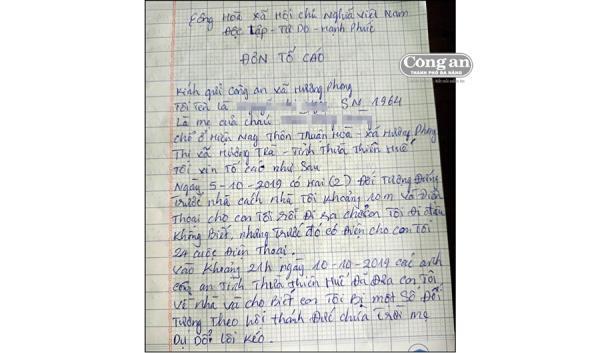 Cộng Hoà Xã Hội chủ Nghĩa Việt Nam
Độc Lập - Tự Do - Hạnh Phúc
ĐƠN TỐ CÁO
Kính gửi công an xã Hương Phong
Tôi Tên là SN 1964
Là mẹ của cháu
chổ ở Hiện Nay Thôn Thuận Hoà - xã Hương Phong
Thị xã Hương Trà - Tỉnh Thừa Thiên Huế
Tôi xin Tố cáo như Sau
Ngày 5-10-2019 có Hai (2) Đối Tượng Đứng
Trước nhà cách nhà Tôi khoảng 10m và Điện
Thoại cho con Tôi rồi Đi ra chở con Tôi Đi đâu
không Biết, nhưng Trước đó có Điện cho con Tôi
24 cuộc Điện Thoại.
vào khoảng 21h ngày 10-10-2019 các anh
công an Tỉnh Thừa Thiên Huế Đã Đưa con Tôi
về nhà và cho Biết con Tôi Bị một Số Đối
Tượng Theo hội thánh Đức chúa Trời mẹ
Dụ Dỗ Lôi kéo.
Công an
THÀNH PHỐ ĐÀ NẴNG